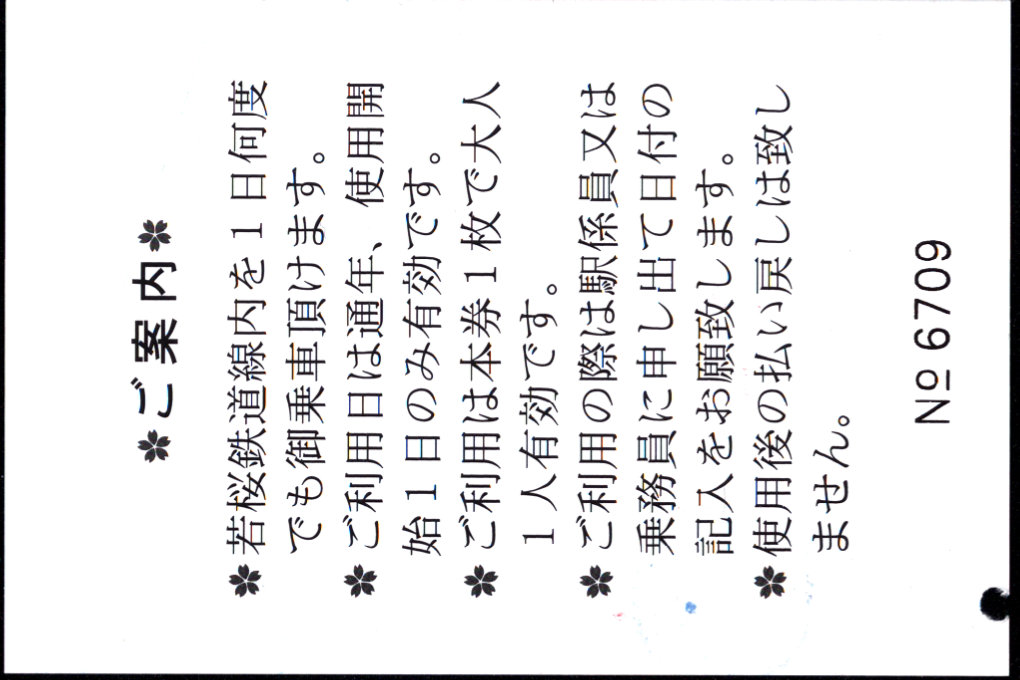 ✽ご案内✽
✽若桜鉄道線内を１日何度
でも御乗車頂けます。
✽ご利用日は通年、使用開
始１日のみ有効です。
✽ご利用は本券１枚で大人
１人有効です。
✽ご利用の際は駅係員又は
乗務員に申し出て日付の
記入をお願致しします。
✽使用後の払い戻しは致し
ません。
№ 6709